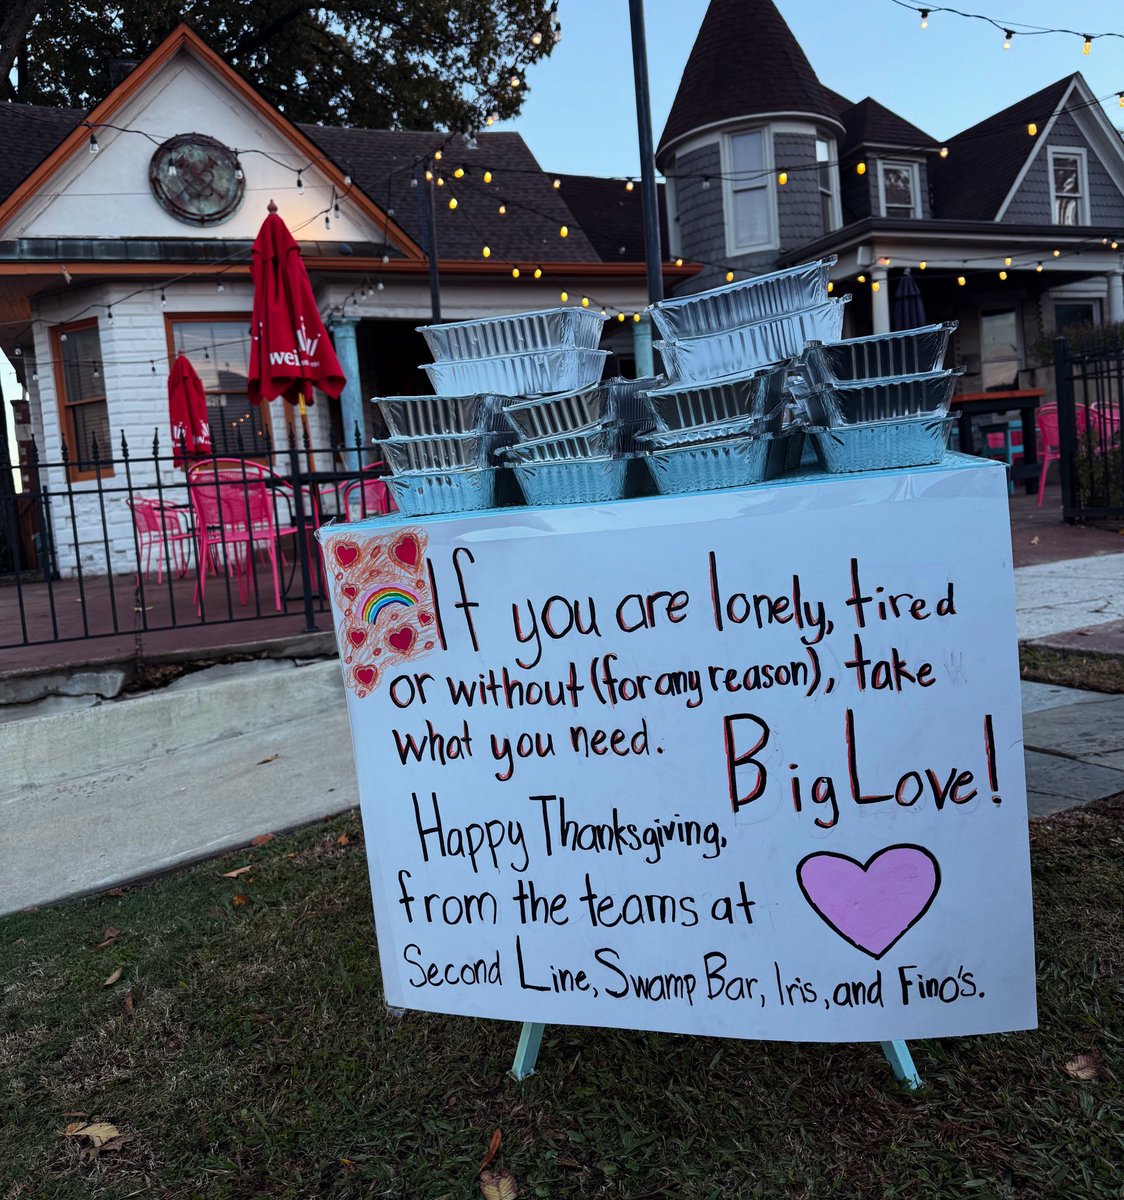 If you are lonely, tired
or without (for any reason), take
what you need.
Big Love!
Happy Thanksgiving,
from the teams at
Second Line, Swamp Bar, Iris, and Fino's.